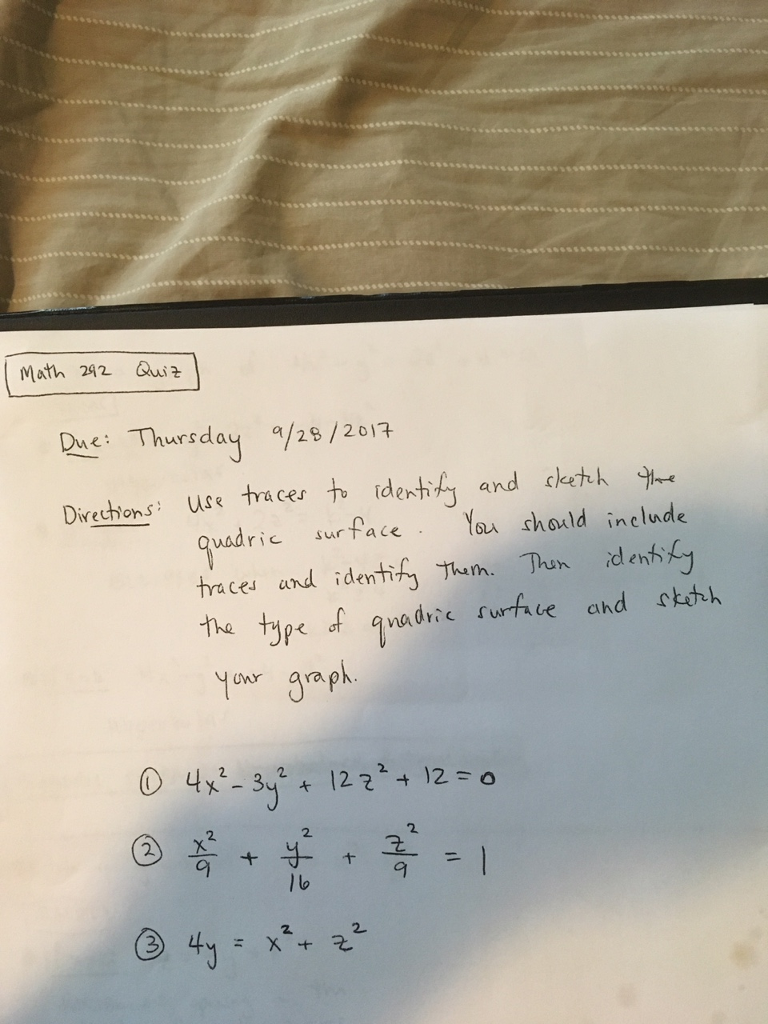 Math 292 Quiz
Due: Thursday 9/28/2017
Directions: Use traces to identify and sketch the
quadric surface. You should include
traces and identify them. Then identify
the type of quadric surface and sketch
your graph.
① 4x² - 3y² + 12z² + 12 = 0
② x²/9 + y²/16 + z²/9 = 1
③ 4y = x² + z²